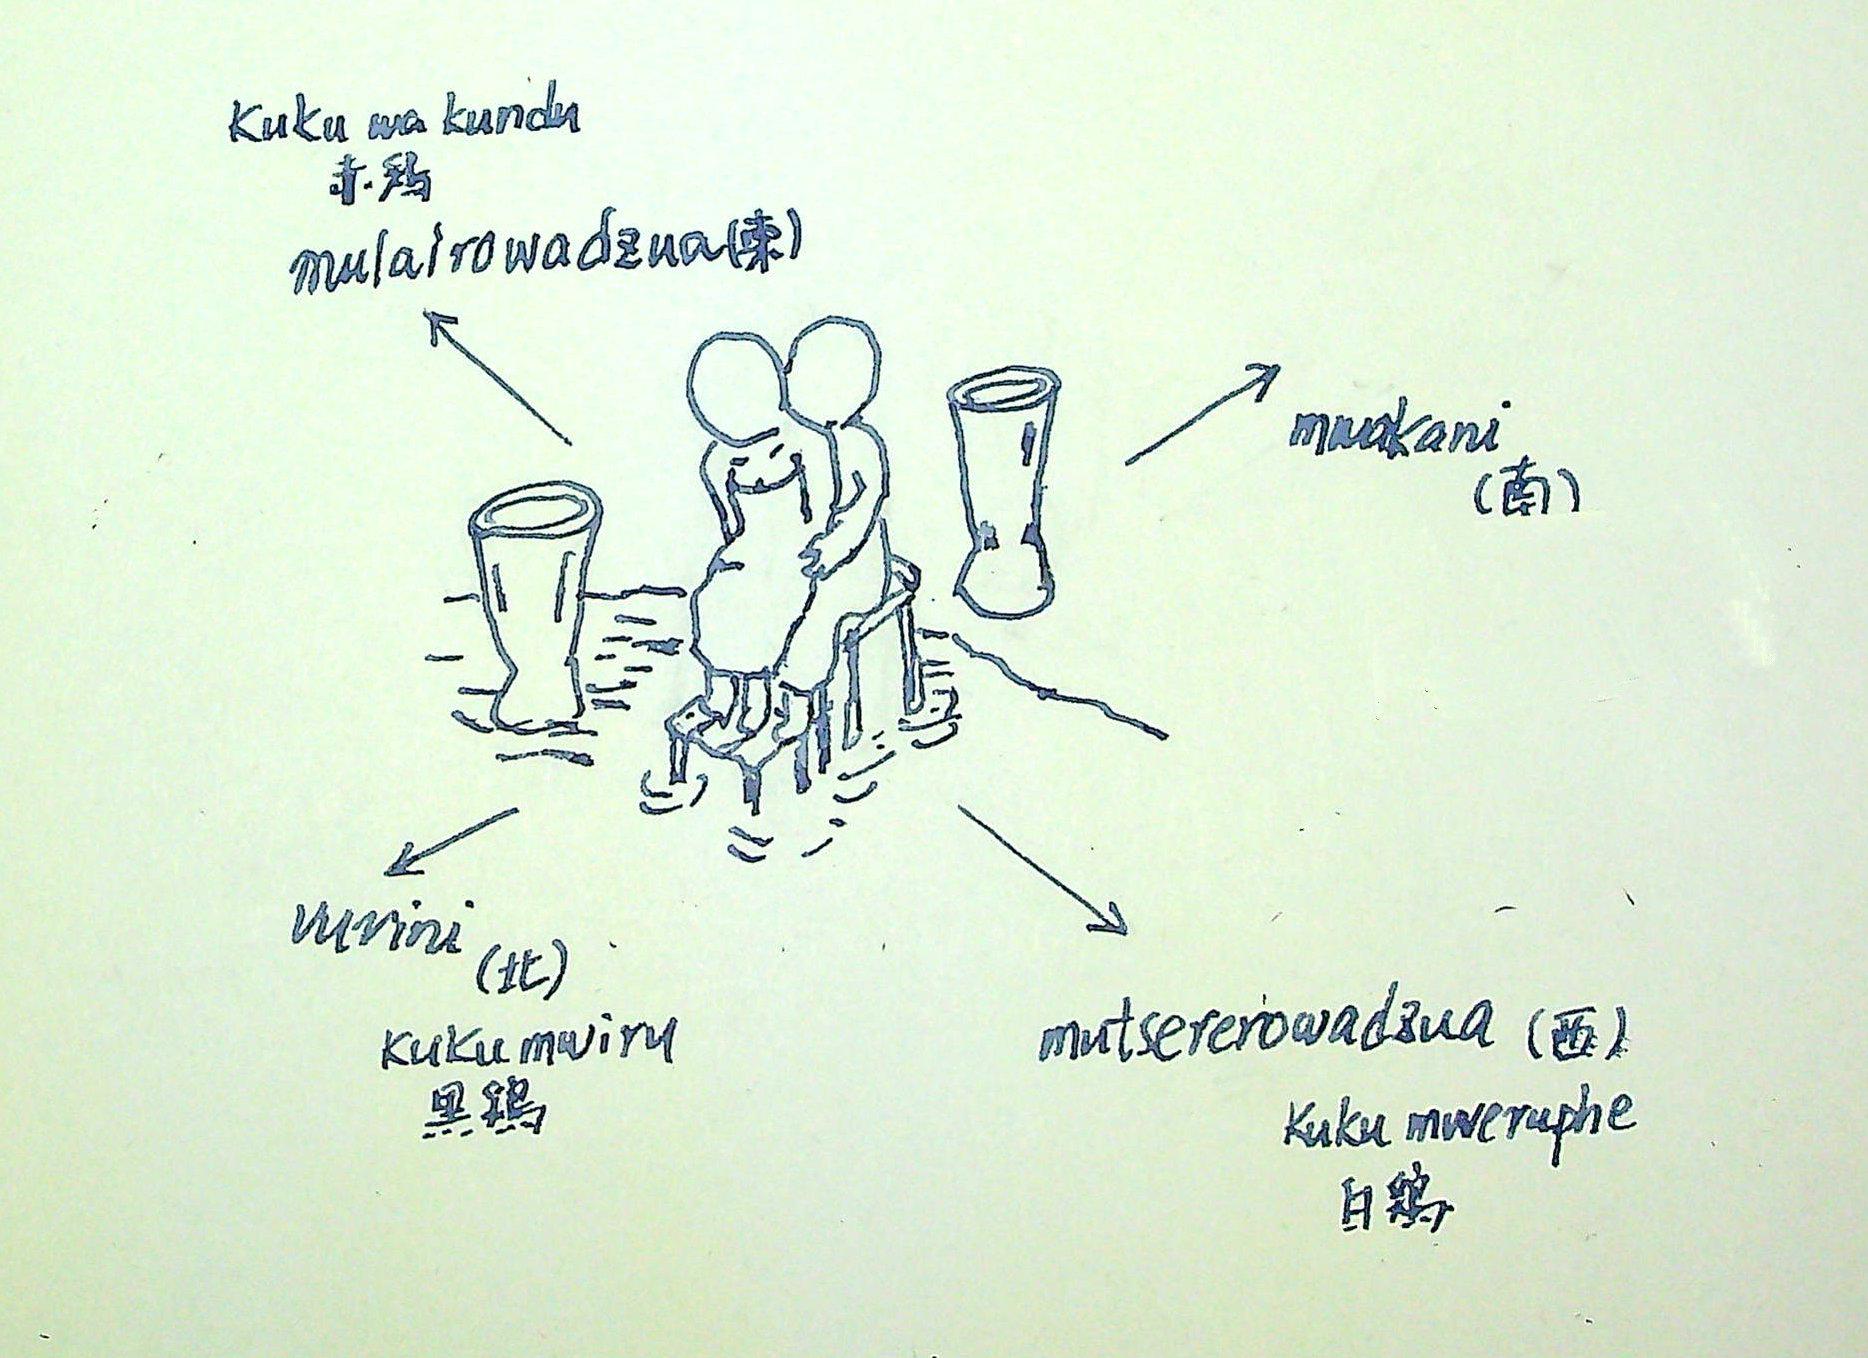 Kuku wa kundu
赤鶏
mulairowadzua (東)
mwakani
(南)
vurini
(北)
kuku mwiru
黒鶏
mutsererowadzua (西)
kuku mweruphe
白鶏